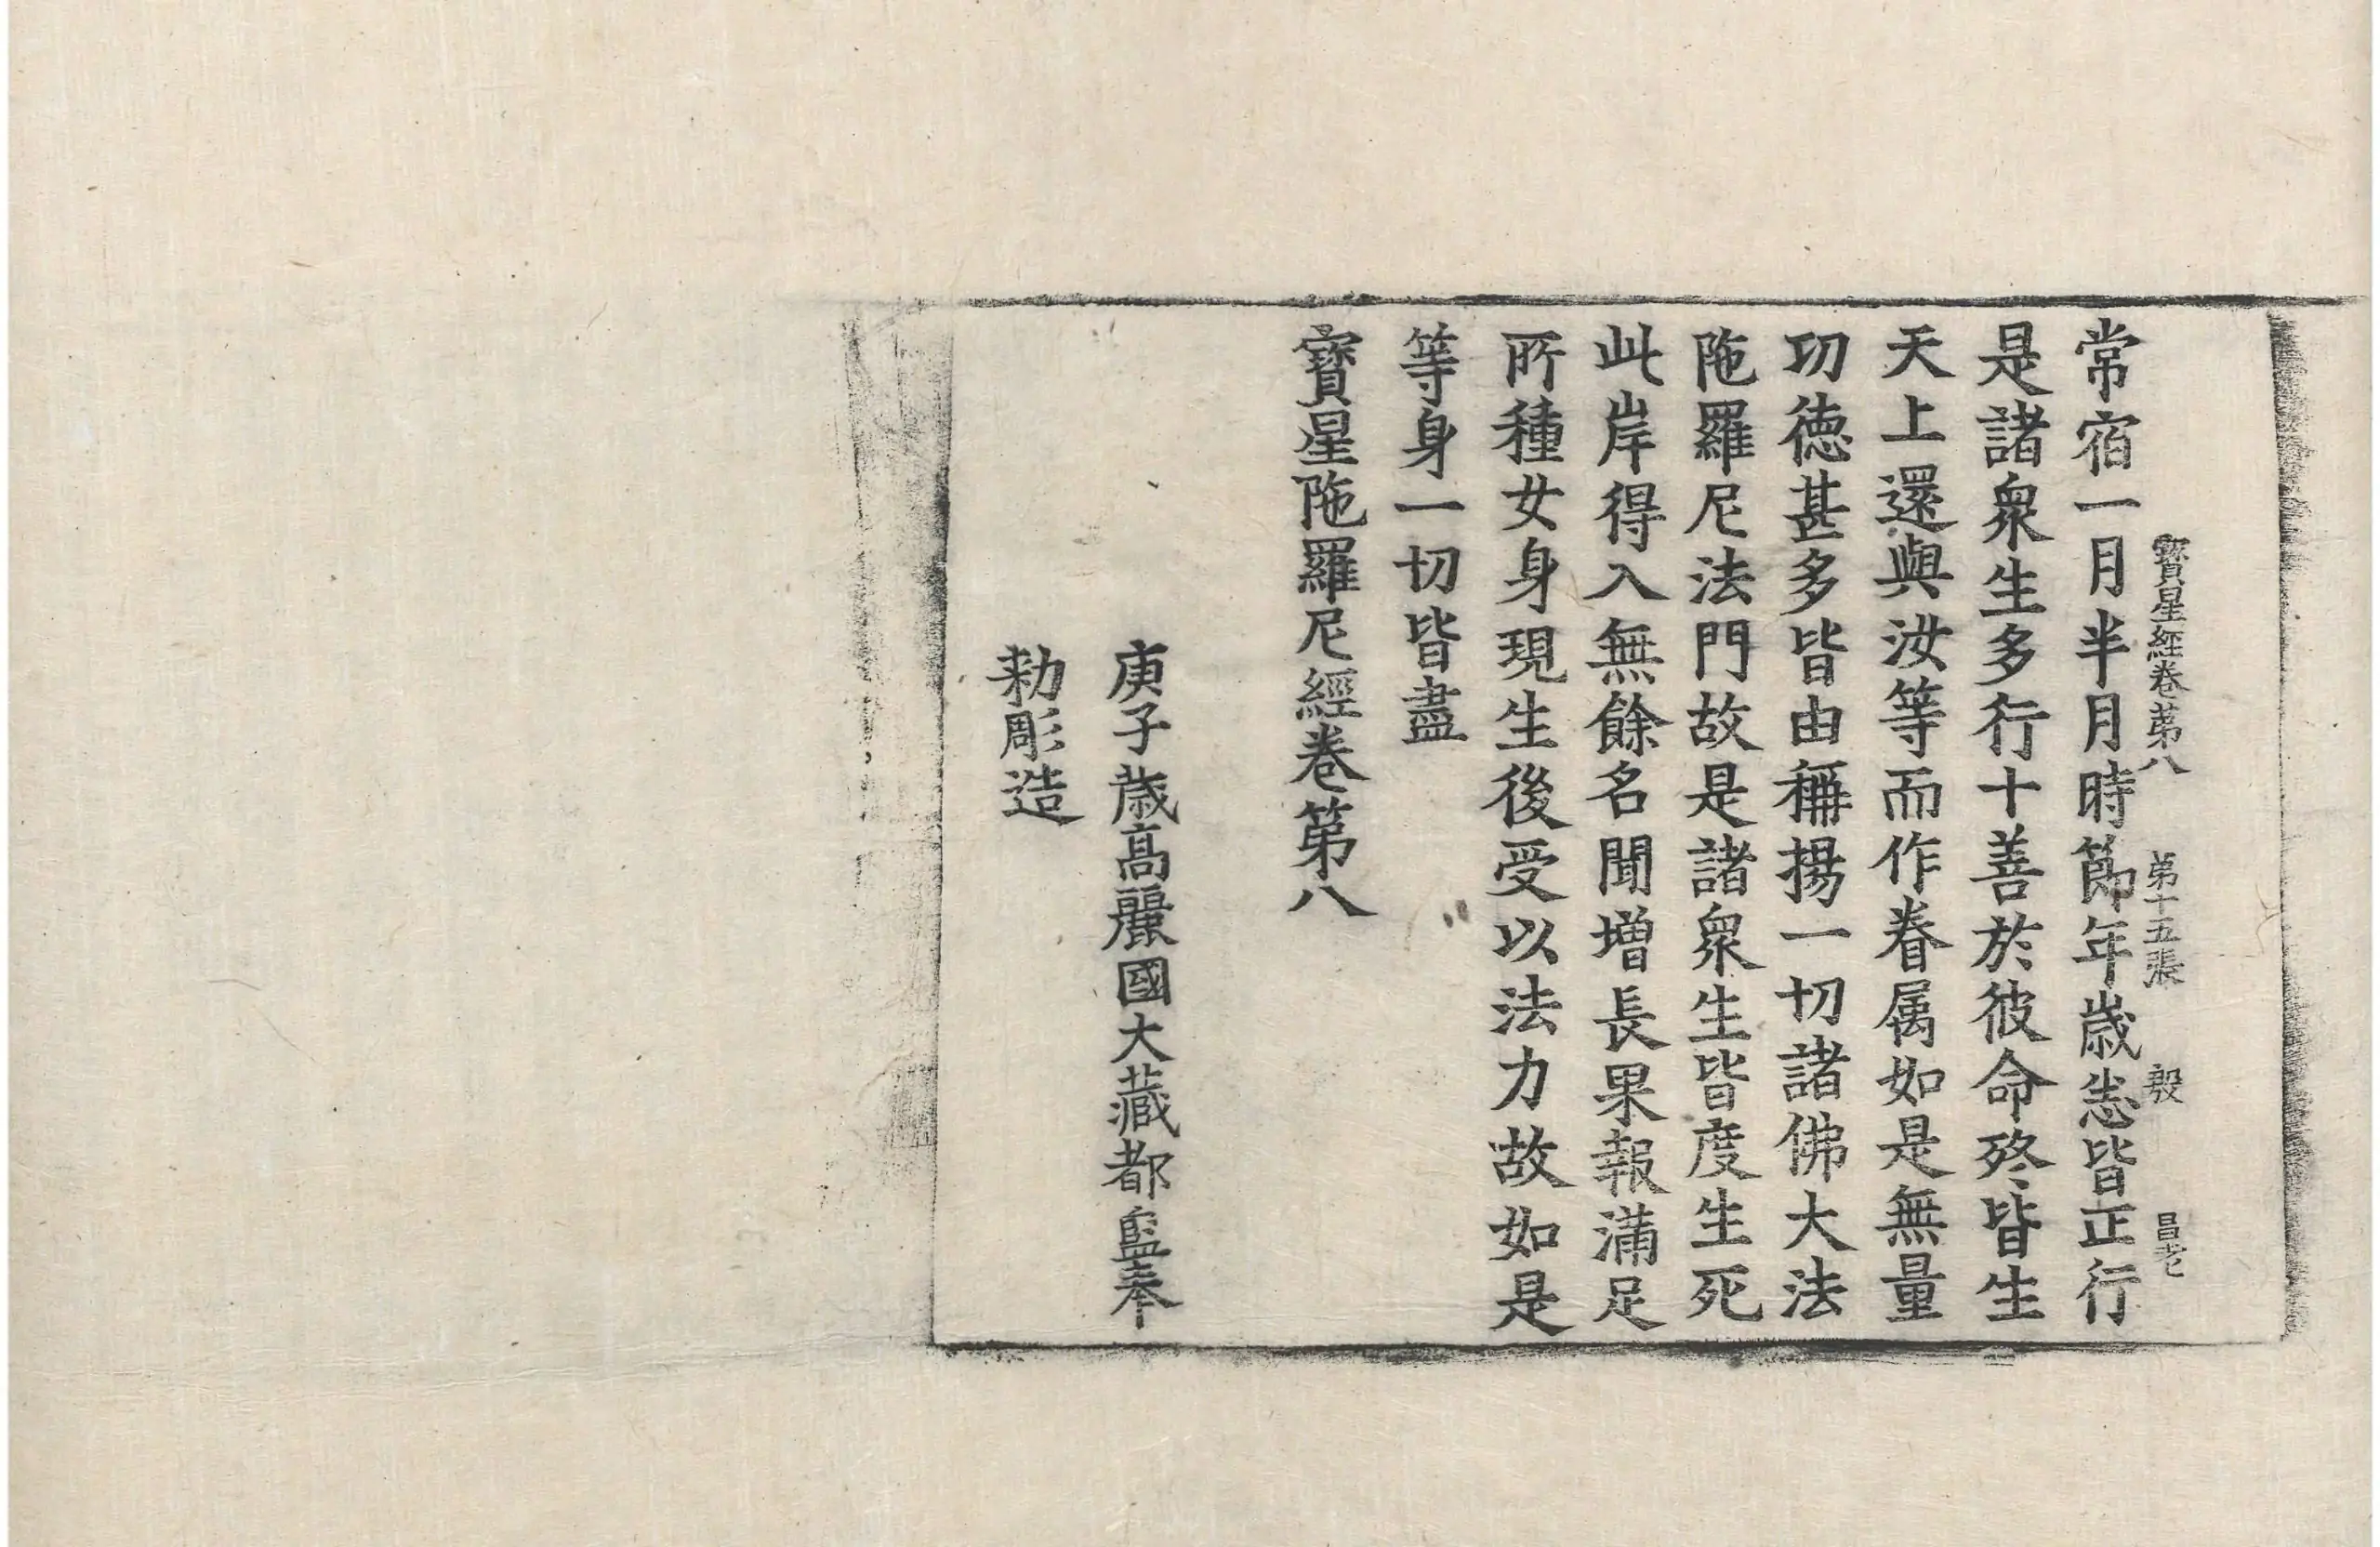 寶星經卷苐八　第十五張　殷　昌老
常宿一月半月時節年歲悉皆正行
是諸衆生多行十善於彼命終皆生
天上還與汝等而作眷属如是無量
功德甚多皆由稱揚一切諸佛大法
陁羅尼法門故是諸衆生皆度生死
此岸得入無餘名聞增長果報滿足
所種女身現生後受以法力故如是
等身一切皆盡
寶星陁羅尼經卷第八
庚子歲高麗國大藏都監奉
勑彫造